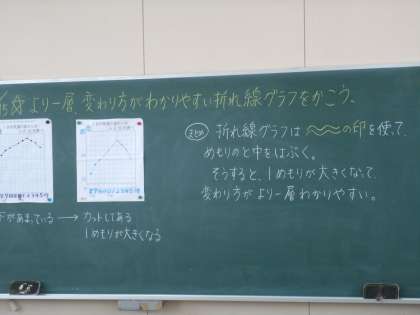 より一層 変わり方がわかりやすい折れ線グラフをかこう。
まとめ 折れ線グラフは の印を使って、
めもりのと中をはぶく。
そうすると、1めもりが大きくなって、
変わり方がより一層わかりやすい。
下があまっている → カットしてある
1めもりが大きくなる